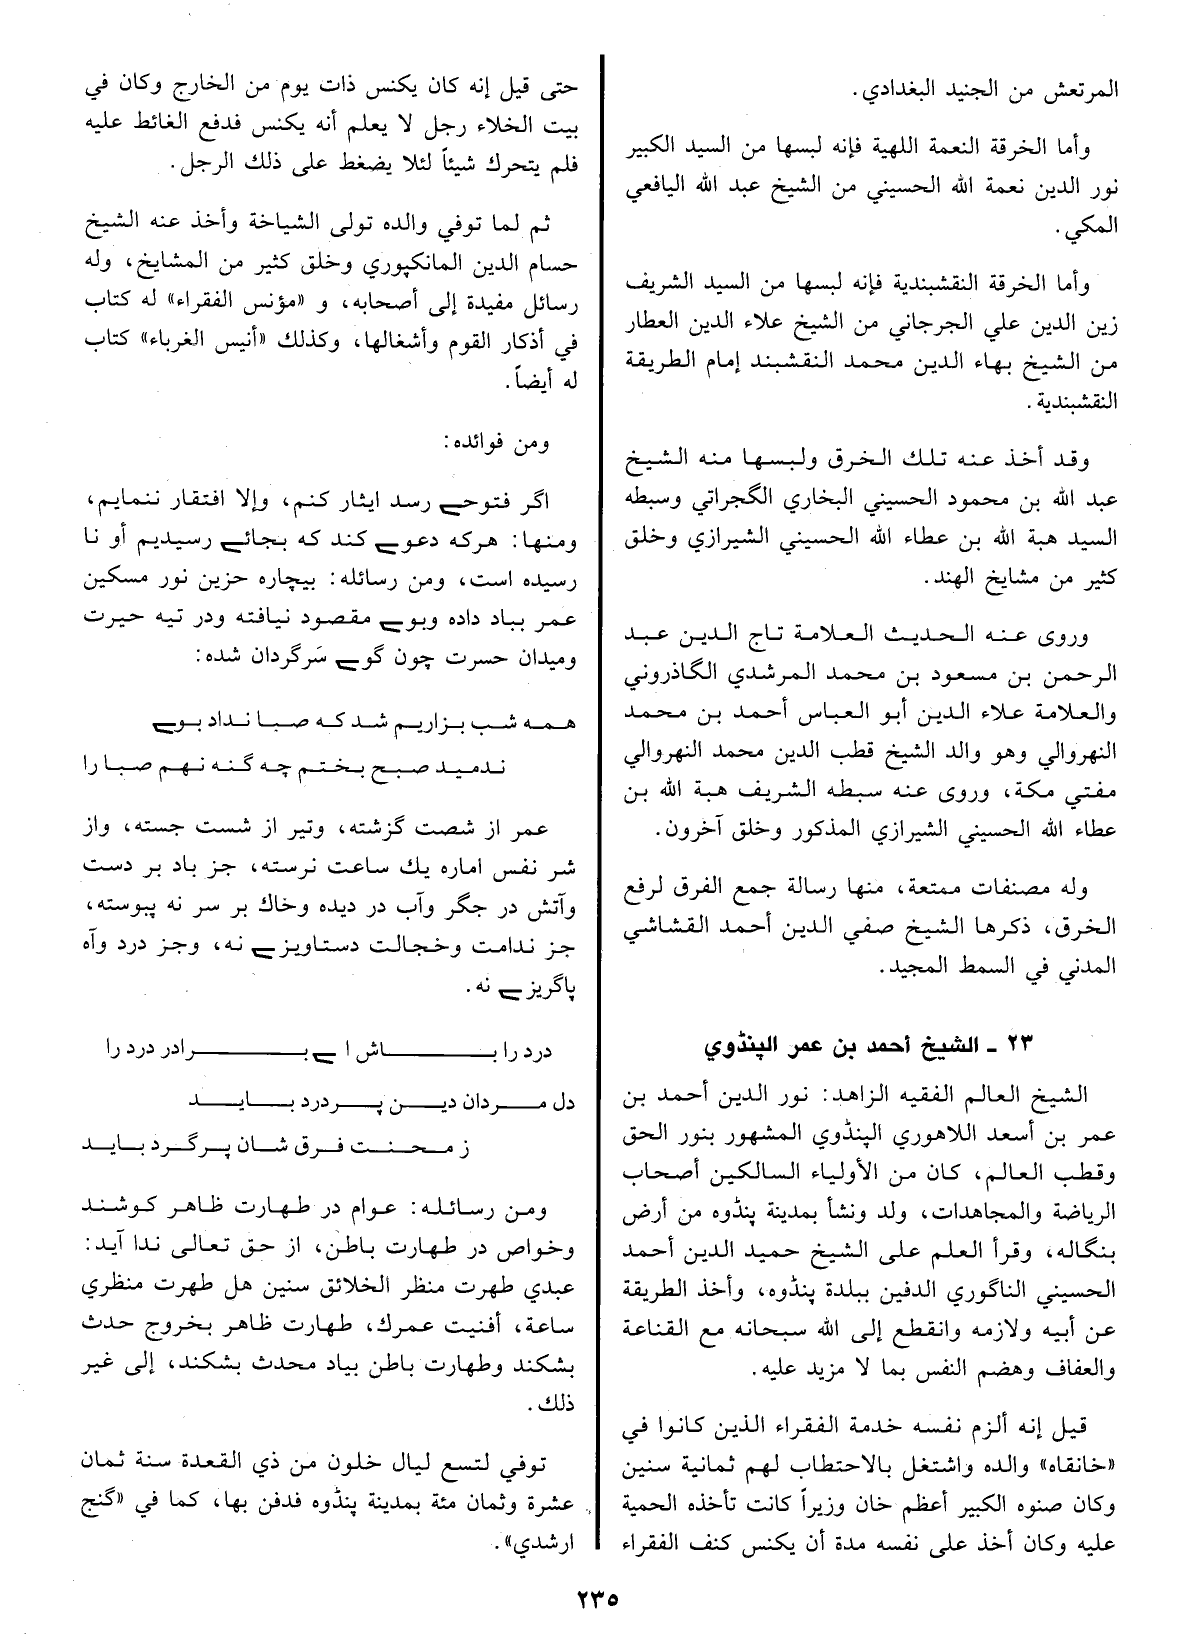 المرتعش من الجنيد البغدادي.
وأما الخرقة النعمة اللهية فإنه لبسها من السيد الكبير
نور الدين نعمة الله الحسيني من الشيخ عبد الله اليافعي
المكي.
وأما الخرقة النقشبندية فإنه لبسها من السيد الشريف
زين الدين علي الجرجاني من الشيخ علاء الدين العطار
من الشيخ بهاء الدين محمد النقشبند إمام الطريقة
النقشبندية.
وقد أخذ عنه تلك الخرق ولبسها منه الشيخ
عبد الله بن محمود الحسيني البخاري الگجراتي وسبطه
السيد هبة الله بن عطاء الله الحسيني الشيرازي وخلق
كثير من مشايخ الهند.
وروى عنه الحديث العلامة تاج الدين عبد
الرحمن بن مسعود بن محمد المرشدي الگاذروني
والعلامة علاء الدين أبو العباس أحمد بن محمد
النهروالي وهو والد الشيخ قطب الدين محمد النهروالي
مفتي مكة، وروى عنه سبطه الشريف هبة الله بن
عطاء الله الحسيني الشيرازي المذكور وخلق آخرون.
وله مصنفات ممتعة، منها رسالة جمع الفرق لرفع
الخرق، ذكرها الشيخ صفي الدين أحمد القشاشي
المدني في السمط المجيد.
٢٣ ـ الشيخ أحمد بن عمر الپنڈوي
الشيخ العالم الفقيه الزاهد: نور الدين أحمد بن
عمر بن أسعد اللاهوري الپنڈوي المشهور بنور الحق
وقطب العالم، كان من الأولياء السالكين أصحاب
الرياضة والمجاهدات، ولد ونشأ بمدينة پنڈوه من أرض
بنگاله، وقرأ العلم على الشيخ حميد الدين أحمد
الحسيني الناگوري الدفين ببلدة پنڈوه، وأخذ الطريقة
عن أبيه ولازمه وانقطع إلى الله سبحانه مع القناعة
والعفاف وهضم النفس بما لا مزيد عليه.
قيل إنه ألزم نفسه خدمة الفقراء الذين كانوا في
«خانقاه» والده واشتغل بالاحتطاب لهم ثمانية سنين
وكان صنوه الكبير أعظم خان وزيراً كانت تأخذه الحمية
عليه وكان أخذ على نفسه مدة أن يكنس كنف الفقراء
حتى قيل إنه كان يكنس ذات يوم من الخارج وكان في
بيت الخلاء رجل لا يعلم أنه يكنس فدفع الغائط عليه
فلم يتحرك شيئاً لئلا يضغط على ذلك الرجل.
ثم لما توفي والده تولى الشياخة وأخذ عنه الشيخ
حسام الدين المانكپوري وخلق كثير من المشايخ، وله
رسائل مفيدة إلى أصحابه، و «مؤنس الفقراء» له كتاب
في أذكار القوم وأشغالها، وكذلك «أنيس الغرباء» كتاب
له أيضاً.
ومن فوائده:
اگر فتوحے رسد ايثار كنم، وإلا افتقار ننمايم،
ومنها: هركه دعوے كند كه بجائے رسيديم أو نا
رسيده است، ومن رسائله: بيچاره حزين نور مسكين
عمر بباد داده وبوے مقصود نيافته ودر تيه حيرت
وميدان حسرت چون گوے سَرگردان شده:
همه شب بزاريم شد كه صبا نداد بوے
ندميد صبح بختم چه گنه نهم صبا را
عمر از شصت گزشته، وتير از شست جسته، واز
شر نفس اماره يك ساعت نرسته، جز باد بر دست
وآتش در جگر وآب در ديده وخاك بر سر نه پيوسته،
جز ندامت وخجالت دستاويزے نه، وجز درد وآه
پاگريزے نه.
درد را بــاش اے بــرادر درد را
دل مردان دين پردرد بايد
ز محنت فرق شان پرگرد بايد
ومن رسائله: عوام در طهارت ظاهر كوشند
وخواص در طهارت باطن، از حق تعالى ندا آيد:
عبدي طهرت منظر الخلائق سنين هل طهرت منظري
ساعة، أفنيت عمرك، طهارت ظاهر بخروج حدث
بشكند وطهارت باطن بياد محدث بشكند، إلى غير
ذلك.
توفي لتسع ليال خلون من ذي القعدة سنة ثمان
عشرة وثمان مئة بمدينة پنڈوه فدفن بها، كما في «گنج
ارشدي».
٢٣٥